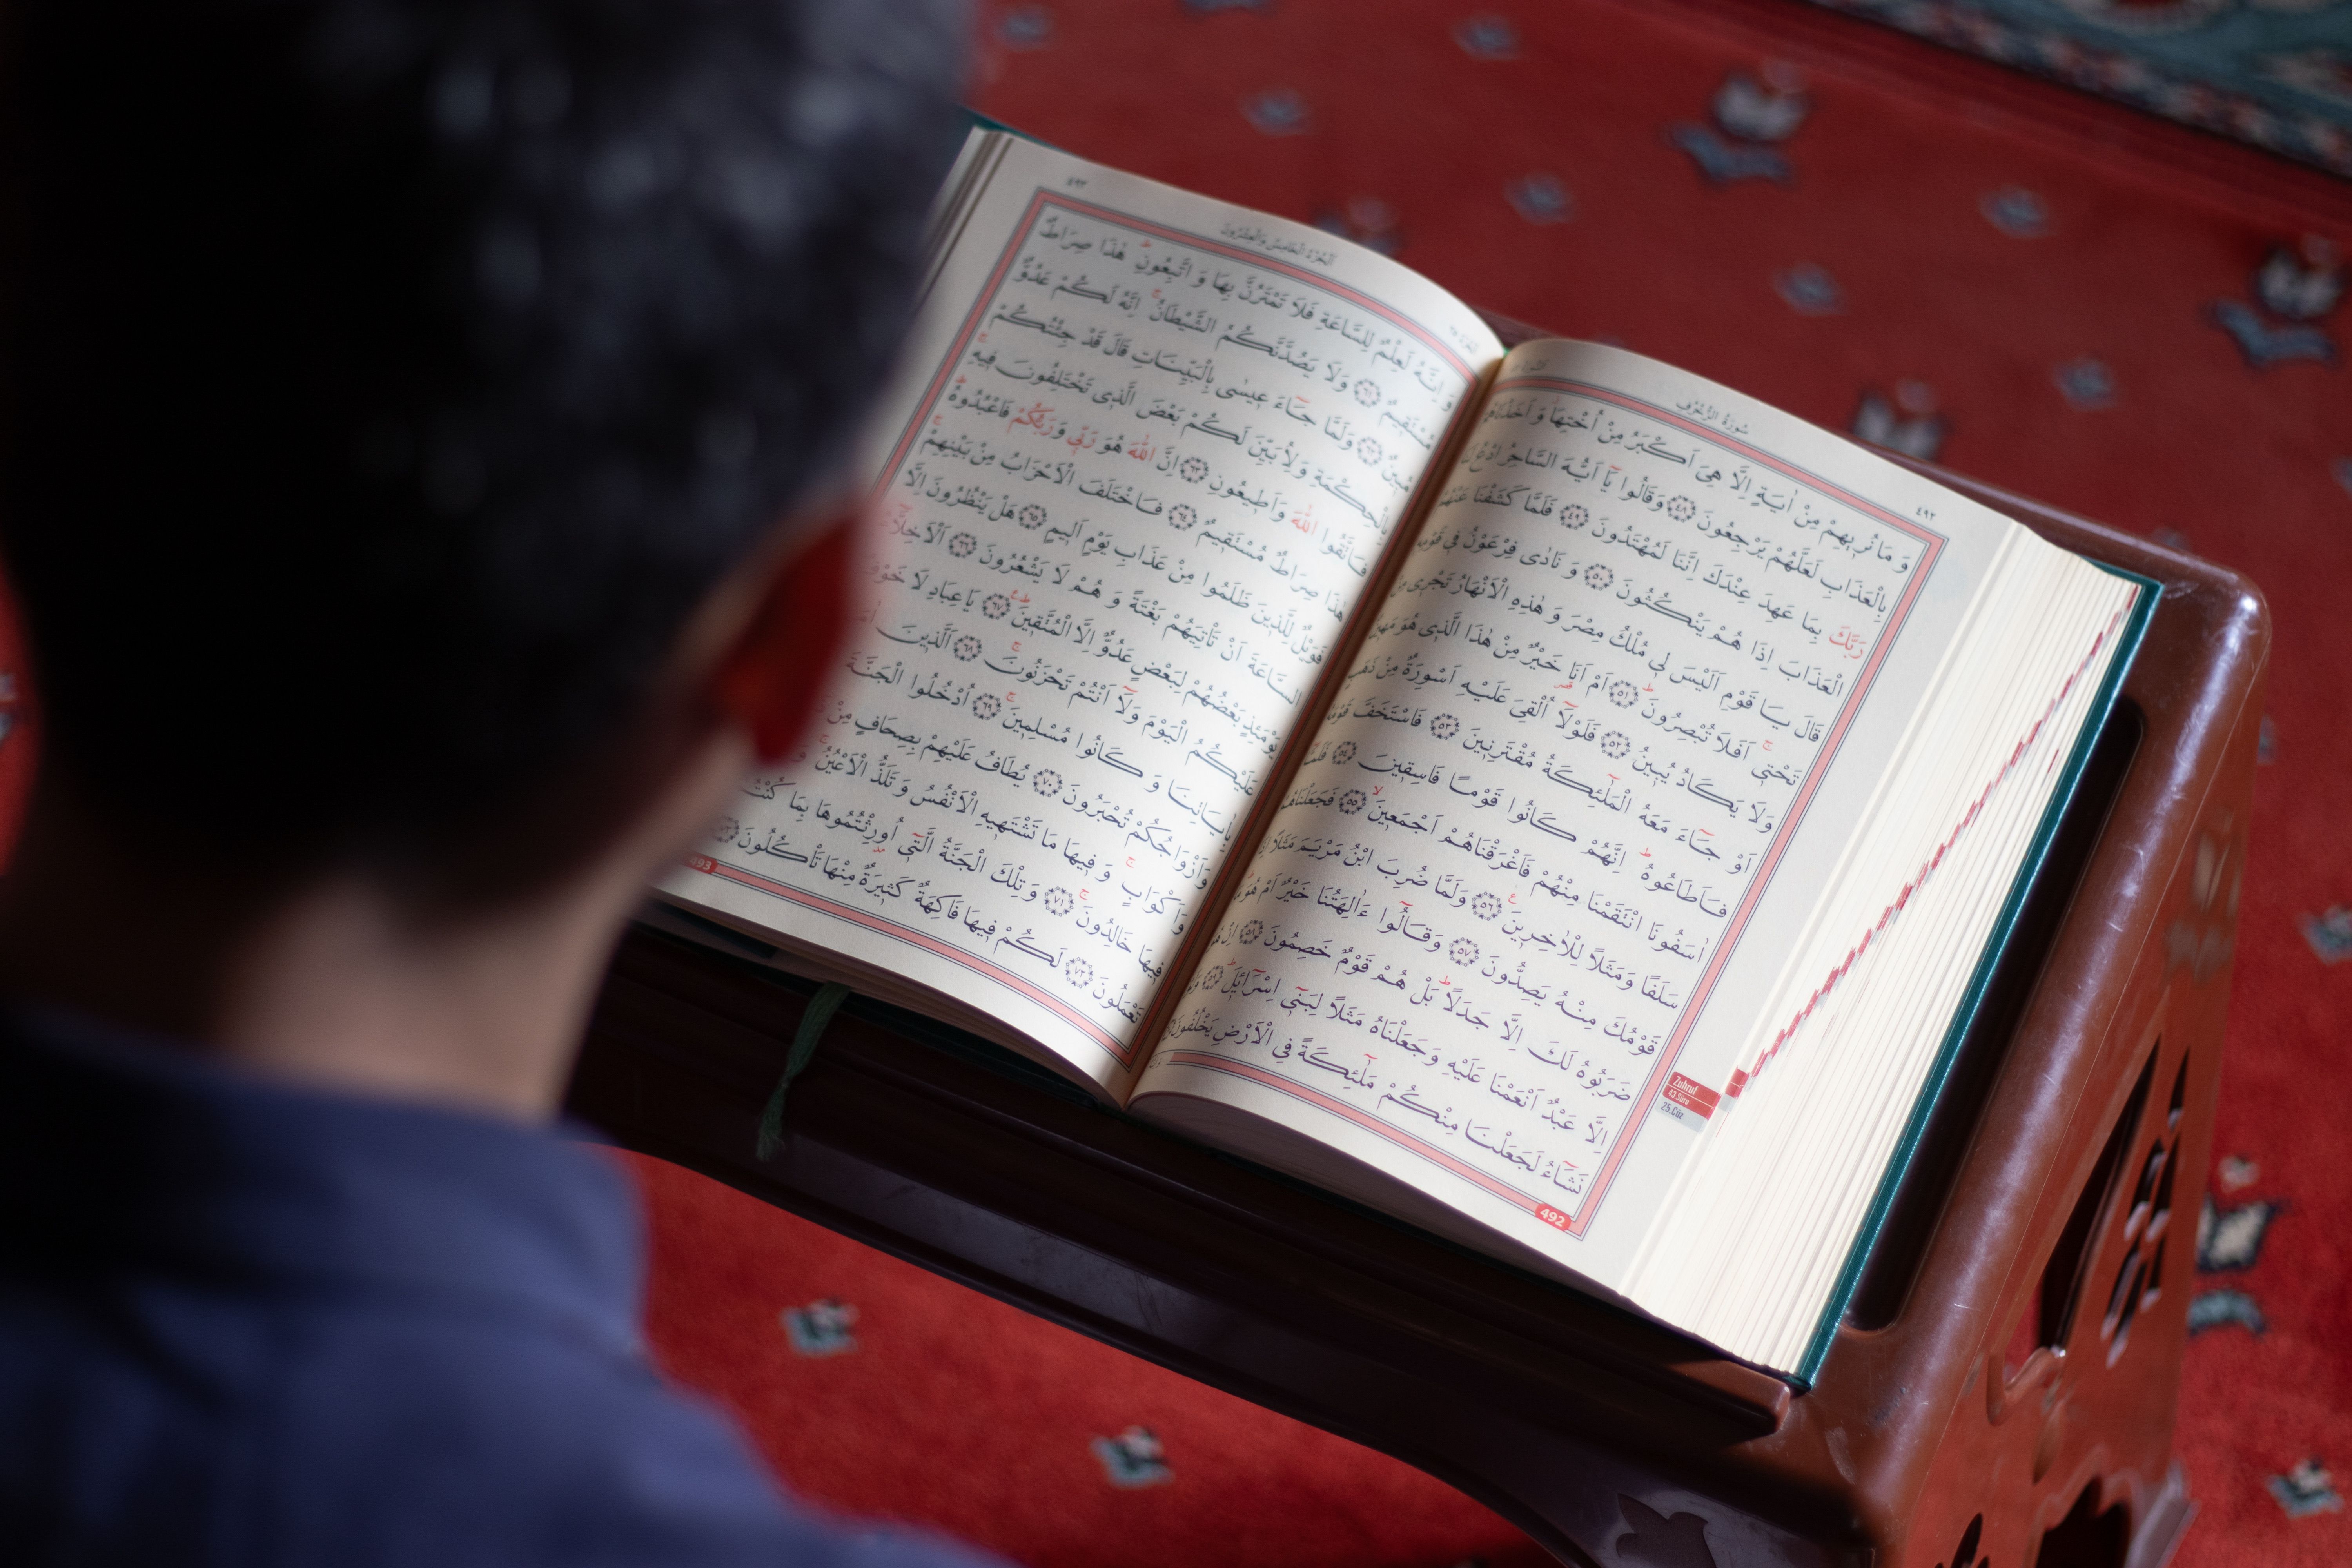 سُورَةُ الزُّخْرُفِ
٤٩٢
وَمَا نُرِيهِمْ مِنْ اٰيَةٍ اِلَّا هِيَ اَكْبَرُ مِنْ اُخْتِهَا وَاَخَذْنَاهُمْ
بِالْعَذَابِ لَعَلَّهُمْ يَرْجِعُونَ ﴿٤٨﴾ وَقَالُوا يَٓا اَيُّهَ السَّاحِرُ ادْعُ لَنَا
رَبَّكَ بِمَا عَهِدَ عِنْدَكَ اِنَّنَا لَمُهْتَدُونَ ﴿٤٩﴾ فَلَمَّا كَشَفْنَا عَنْهُمُ
الْعَذَابَ اِذَا هُمْ يَنْكُثُونَ ﴿٥٠﴾ وَنَادٰى فِرْعَوْنُ فِي قَوْمِهِ
قَالَ يَا قَوْمِ اَلَيْسَ لِي مُلْكُ مِصْرَ وَهٰذِهِ الْاَنْهَارُ تَجْرِي مِنْ
تَحْتِي اَفَلَا تُبْصِرُونَ ﴿٥١﴾ اَمْ اَنَا خَيْرٌ مِنْ هٰذَا الَّذِي هُوَ مَهِينٌ
وَلَا يَكَادُ يُبِينُ ﴿٥٢﴾ فَلَوْلَٓا اُلْقِيَ عَلَيْهِ اَسْوِرَةٌ مِنْ ذَهَبٍ
اَوْ جَٓاءَ مَعَهُ الْمَلٰٓئِكَةُ مُقْتَرِنِينَ ﴿٥٣﴾ فَاسْتَخَفَّ قَوْمَهُ
فَاَطَاعُوهُ اِنَّهُمْ كَانُوا قَوْمًا فَاسِقِينَ ﴿٥٤﴾ فَلَمَّٓا
اٰسَفُونَا انْتَقَمْنَا مِنْهُمْ فَاَغْرَقْنَاهُمْ اَجْمَعِينَ ﴿٥٥﴾ فَجَعَلْنَاهُمْ
سَلَفًا وَمَثَلًا لِلْاٰخِرِينَ ﴿٥٦﴾ وَلَمَّا ضُرِبَ ابْنُ مَرْيَمَ مَثَلًا اِذَا
قَوْمُكَ مِنْهُ يَصِدُّونَ ﴿٥٧﴾ وَقَالُٓوا ءَاٰلِهَتُنَا خَيْرٌ اَمْ هُوَ مَا
ضَرَبُوهُ لَكَ اِلَّا جَدَلًا بَلْ هُمْ قَوْمٌ خَصِمُونَ ﴿٥٨﴾ اِنْ هُوَ
اِلَّا عَبْدٌ اَنْعَمْنَا عَلَيْهِ وَجَعَلْنَاهُ مَثَلًا لِبَنِٓي اِسْرَٓائِيلَ ﴿٥٩﴾
نَشَٓاءُ لَجَعَلْنَا مِنْكُمْ مَلٰٓئِكَةً فِي الْاَرْضِ يَخْلُفُونَ
Zuhruf
43.Sûre
25.Cüz
492
اَلْجُزْءُ الْخَامِسُ وَالْعِشْرُونَ
٤٩٣
وَاِنَّهُ لَعِلْمٌ لِلسَّاعَةِ فَلَا تَمْتَرُنَّ بِهَا وَاتَّبِعُونِ هٰذَا صِرَاطٌ
مُسْتَقِيمٌ ﴿٦١﴾ وَلَا يَصُدَّنَّكُمُ الشَّيْطَانُ اِنَّهُ لَكُمْ عَدُوٌّ
مُبِينٌ ﴿٦٢﴾ وَلَمَّا جَٓاءَ عِيسٰى بِالْبَيِّنَاتِ قَالَ قَدْ جِئْتُكُمْ
بِالْحِكْمَةِ وَلِاُبَيِّنَ لَكُمْ بَعْضَ الَّذِي تَخْتَلِفُونَ فِيهِ
فَاتَّقُوا اللّٰهَ وَاَطِيعُونِ ﴿٦٣﴾ اِنَّ اللّٰهَ هُوَ رَبِّي وَرَبُّكُمْ فَاعْبُدُوهُ
هٰذَا صِرَاطٌ مُسْتَقِيمٌ ﴿٦٤﴾ فَاخْتَلَفَ الْاَحْزَابُ مِنْ بَيْنِهِمْ
فَوَيْلٌ لِلَّذِينَ ظَلَمُوا مِنْ عَذَابِ يَوْمٍ اَلِيمٍ ﴿٦٥﴾ هَلْ يَنْظُرُونَ اِلَّا
السَّاعَةَ اَنْ تَأْتِيَهُمْ بَغْتَةً وَهُمْ لَا يَشْعُرُونَ ﴿٦٦﴾ اَلْاَخِلَّٓاءُ
يَوْمَئِذٍ بَعْضُهُمْ لِبَعْضٍ عَدُوٌّ اِلَّا الْمُتَّقِينَ ﴿٦٧﴾ يَا عِبَادِ لَا خَوْفٌ
عَلَيْكُمُ الْيَوْمَ وَلَٓا اَنْتُمْ تَحْزَنُونَ ﴿٦٨﴾ اَلَّذِينَ
بِاٰيَاتِنَا وَكَانُوا مُسْلِمِينَ ﴿٦٩﴾ اُدْخُلُوا الْجَنَّةَ
وَاَزْوَاجُكُمْ تُحْبَرُونَ ﴿٧٠﴾ يُطَافُ عَلَيْهِمْ بِصِحَافٍ مِنْ
وَاَكْوَابٍ وَفِيهَا مَا تَشْتَهِيهِ الْاَنْفُسُ وَتَلَذُّ الْاَعْيُنُ
فِيهَا خَالِدُونَ ﴿٧١﴾ وَتِلْكَ الْجَنَّةُ الَّتِٓي اُورِثْتُمُوهَا بِمَا كُنْتُمْ
تَعْمَلُونَ ﴿٧٢﴾ لَكُمْ فِيهَا فَاكِهَةٌ كَثِيرَةٌ مِنْهَا تَأْكُلُونَ
493